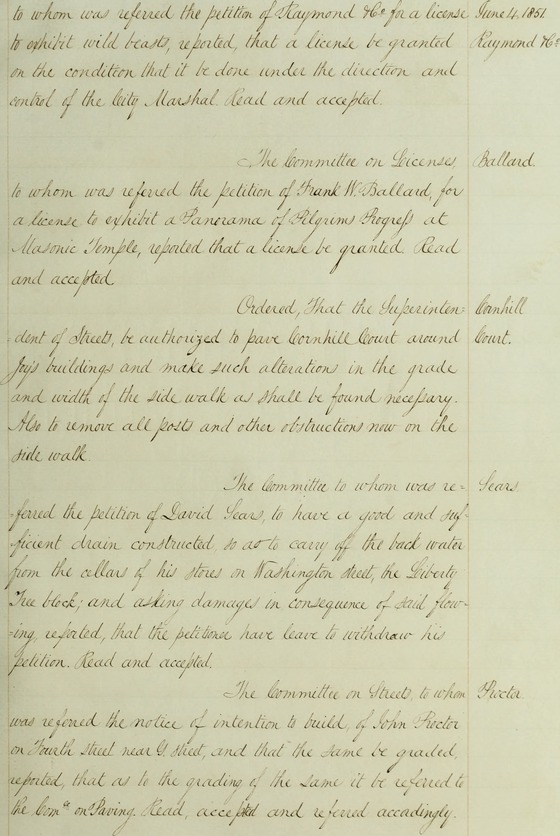 to whom was referred the petition of Raymond & Co for a license
June 4, 1851
to exhibit wild beasts, reported, that a license be granted
Raymond & Co
on the condition that it be done under the direction and
control of the City Marshal. Read and accepted.
The Committee on Licenses,
Ballard.
to whom was referred the petition of Frank W. Ballard, for
a license to exhibit a Panorama of Pilgrims Progress at
Masonic Temple, reported that a license be granted. Read
and accepted.
Ordered, That the Superinten=
Cornhill
=dent of Streets, be authorized to pave Cornhill Court around
Court.
Joy's buildings and make such alterations in the grade
and width of the side walk as shall be found necessary.
Also to remove all posts and other obstructions now on the
side walk.
The Committee to whom was re=
Sears
=ferred the petition of David Sears, to have a good and suf-
-ficient drain constructed, so as to carry off the back water
from the cellars of his stores on Washington street, the Liberty
Tree block; and asking damages in consequence of said flow-
-ing, reported, that the petitioner have leave to withdraw his
petition. Read and accepted.
The Committee on Streets, to whom
Proctor
was referred the notice of intention to build, of John Proctor
on Fourth street near G. street, and that the same be graded,
reported, that as to the grading of the same it be referred to
the Comee on Paving. Read, accepted and referred accordingly.